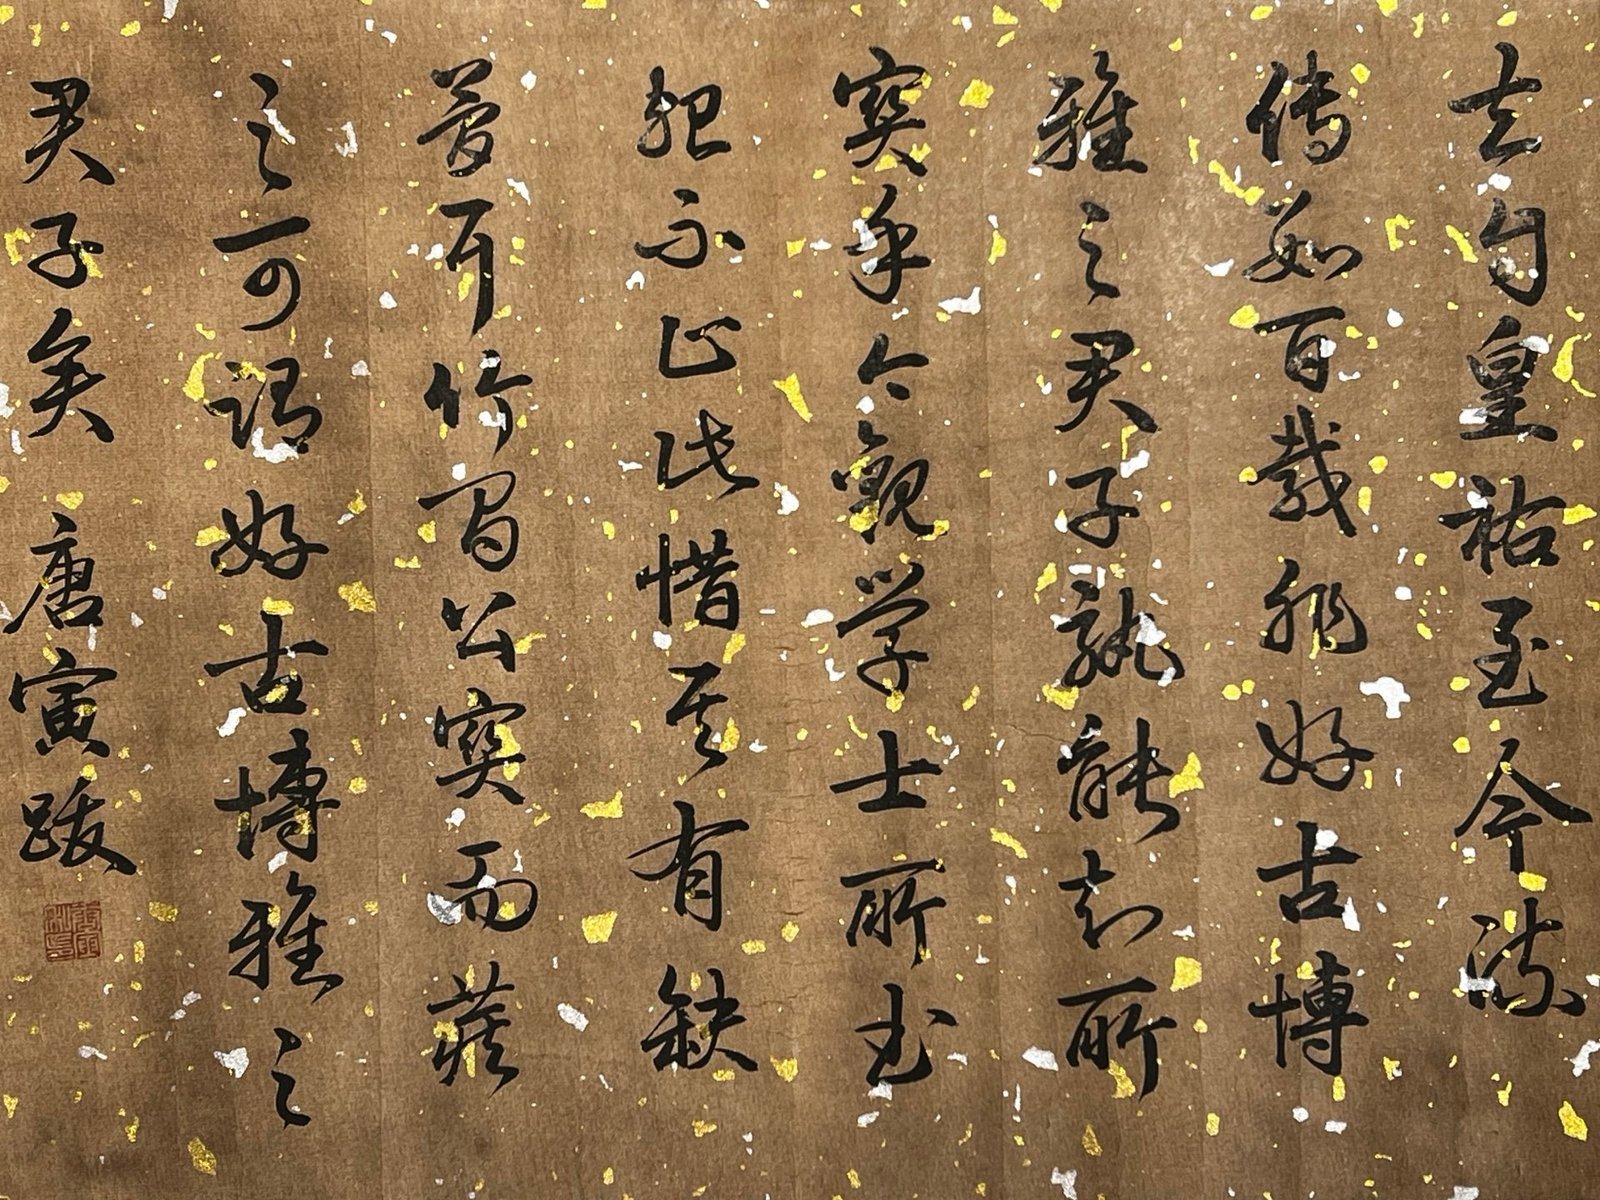 夫自皇祐至今流
傳數百載非好古博
雅之君子孰能知所
寶乎今觀學士所書
不止此惜其有缺
耳竹間公寶而藏
之可謂好古博雅之
君子矣 唐寅跋